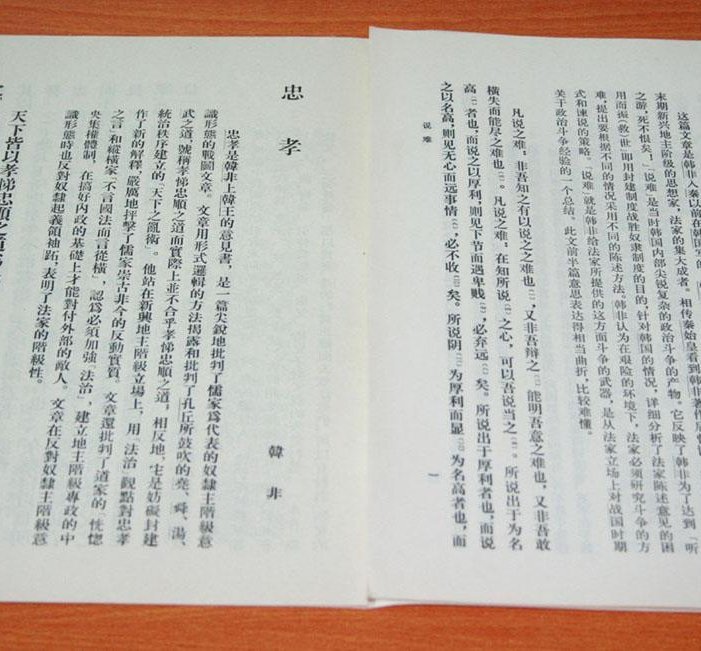 这篇文章是韩非入秦以前在韩国写的
末期新兴地主阶级的思想家,法家的集大成者。相传秦始皇看到韩非著作后曾说
之游,死不恨矣!《说难》是当时韩国内部尖锐复杂的政治斗争的产物。它反映了韩非为了达到「听
用而振(救)世」即用封建制度战胜奴隶制度的目的,针对韩国的情况,详细分析了法家陈述意见的困
难,提出要根据不同的情况采用不同的陈述方法。韩非认为在艰险的环境下,法家必须研究斗争的方
式和谏说的策略。《说难》就是韩非给法家所提供的这方面斗争的武器,是从法家立场上对战国时期
关于政治斗争经验的一个总结。此文前半篇意思表达得相当曲折,比较难懂。
凡说之难,非吾知之有以说之之难也,又非吾辩之能明吾意之难也,又非吾敢
横失而能尽之难也。凡说之难,在知所说之心,可以吾说当之。所说出于为名
高者也,而说之以厚利,则见下节而遇卑贱,必弃远矣。所说出于厚利者也,而说
之以名高,则见无心而远事情,必不收矣。所说阴为厚利而显为名高者也,而
说难
一
忠孝
韓非
忠孝是韓非上韓王的意見書,是一篇尖銳地批判了儒家爲代表的奴隸主階級意
識形態的戰鬪文章。文章用形式邏輯的方法揭露和批判了孔丘所鼓吹的堯、舜、湯、
武之道,號稱孝悌忠順之道而實際上並不合乎孝悌忠順之道;相反地,它是妨礙封建
統治秩序建立的「天下之亂術」。他站在新興地主階級立場上,用「法治」觀點對忠孝
作了新的解釋,嚴厲地抨擊了儒家崇古非今的反動實質。文章還批判了道家的「恍惚
之言」和縱橫家「不言國法而言從橫」,認爲必須加強「法治」,建立地主階級專政的中
央集權體制,在搞好內政的基礎上才能對付外部的敵人。文章在反對奴隸主階級意
識形態時也反對奴隸起義領袖跖,表明了法家的階級性。
天下皆以孝悌忠順之道爲